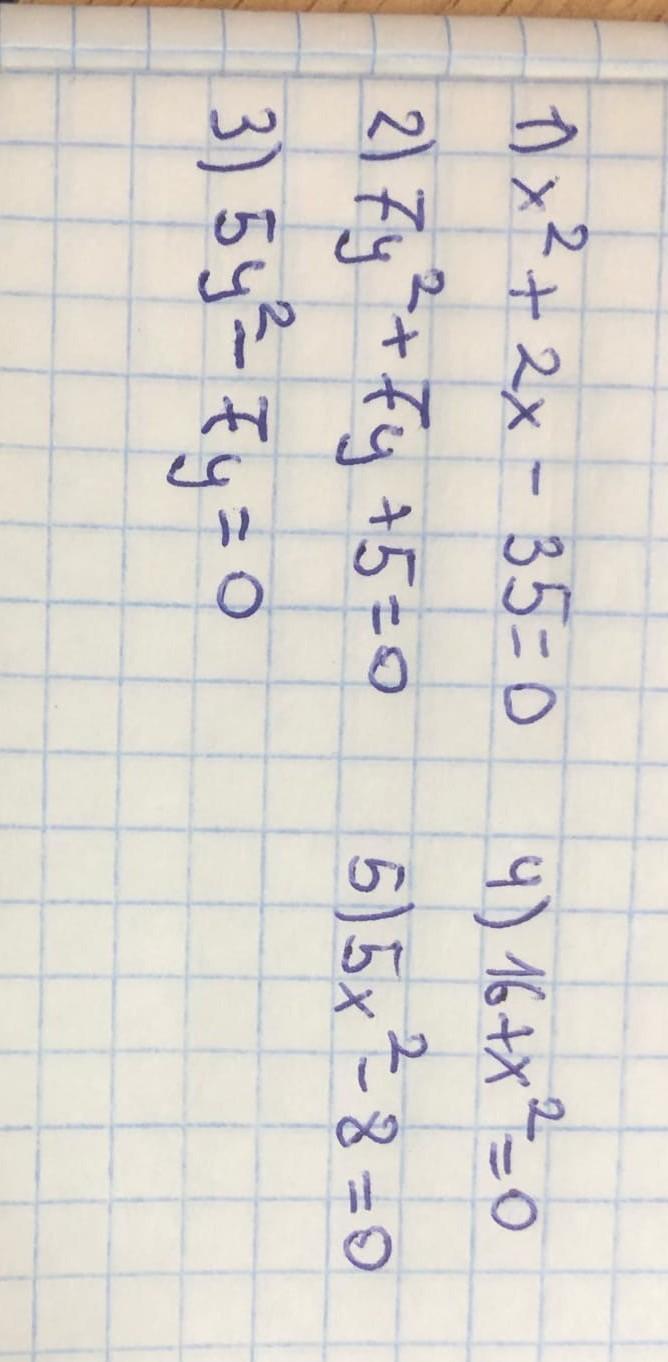 1) x² + 2x - 35 = 0
2) 7y² + 7y + 5 = 0
3) 5y² - 7y = 0
4) 16 + x² = 0
5) 5x² - 8 = 0